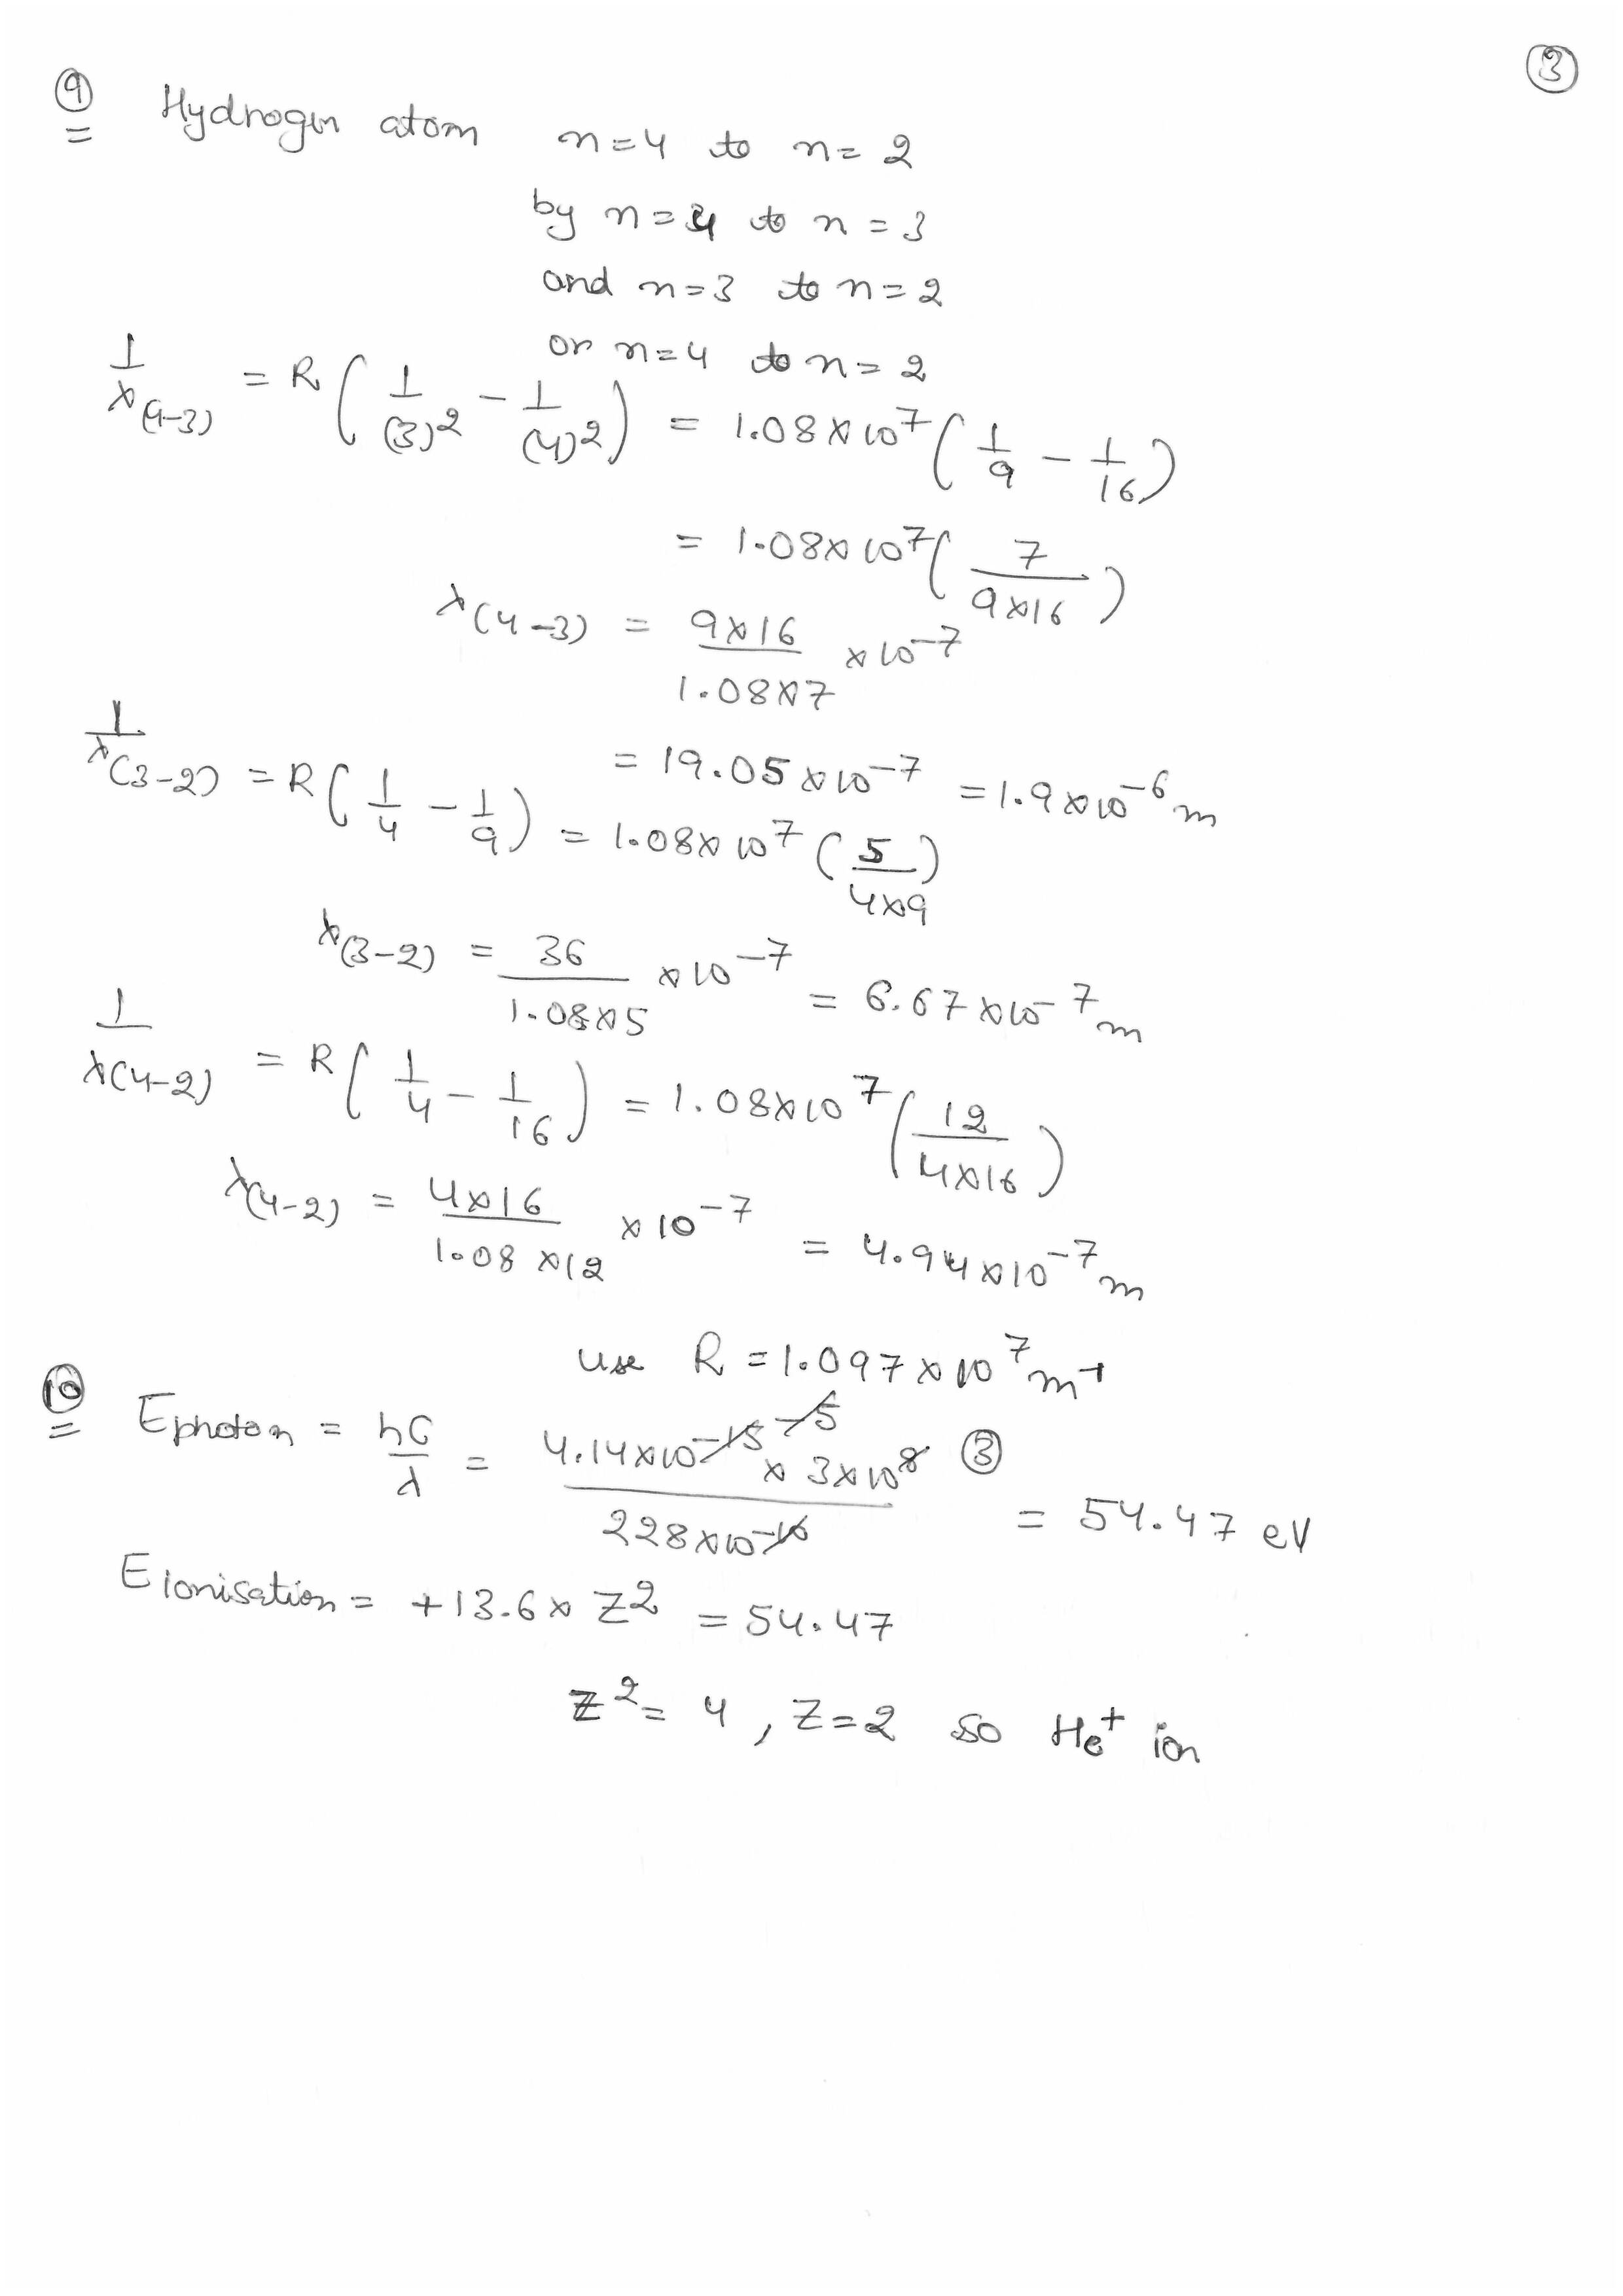 ③
⑨ Hydrogen atom n=4 to n=2
by n=4 to n=3
and n=3 to n=2
or n=4 to n=2
1/λ(4-3) = R(1/(3)² - 1/(4)²) = 1.08×10⁷(1/9 - 1/16)
= 1.08×10⁷(7/9×16)
λ(4-3) = 9×16/1.08×7 ×10⁻⁷
= 19.05×10⁻⁷ = 1.9×10⁻⁶ m
1/λ(3-2) = R(1/4 - 1/9) = 1.08×10⁷(5/4×9)
λ(3-2) = 36/1.08×5 ×10⁻⁷ = 6.67×10⁻⁷ m
1/λ(4-2) = R(1/4 - 1/16) = 1.08×10⁷(12/4×16)
λ(4-2) = 4×16/1.08×12 ×10⁻⁷ = 4.94×10⁻⁷ m
use R = 1.097×10⁷ m⁻¹
⑩ Ephoton = hC/λ = 4.14×10⁻¹⁵ ⁻⁵ × 3×10⁸ ③/228×10⁻¹⁰ = 54.47 eV
EIonisation = +13.6×Z² = 54.47
Z² = 4, Z=2 so He⁺ ion